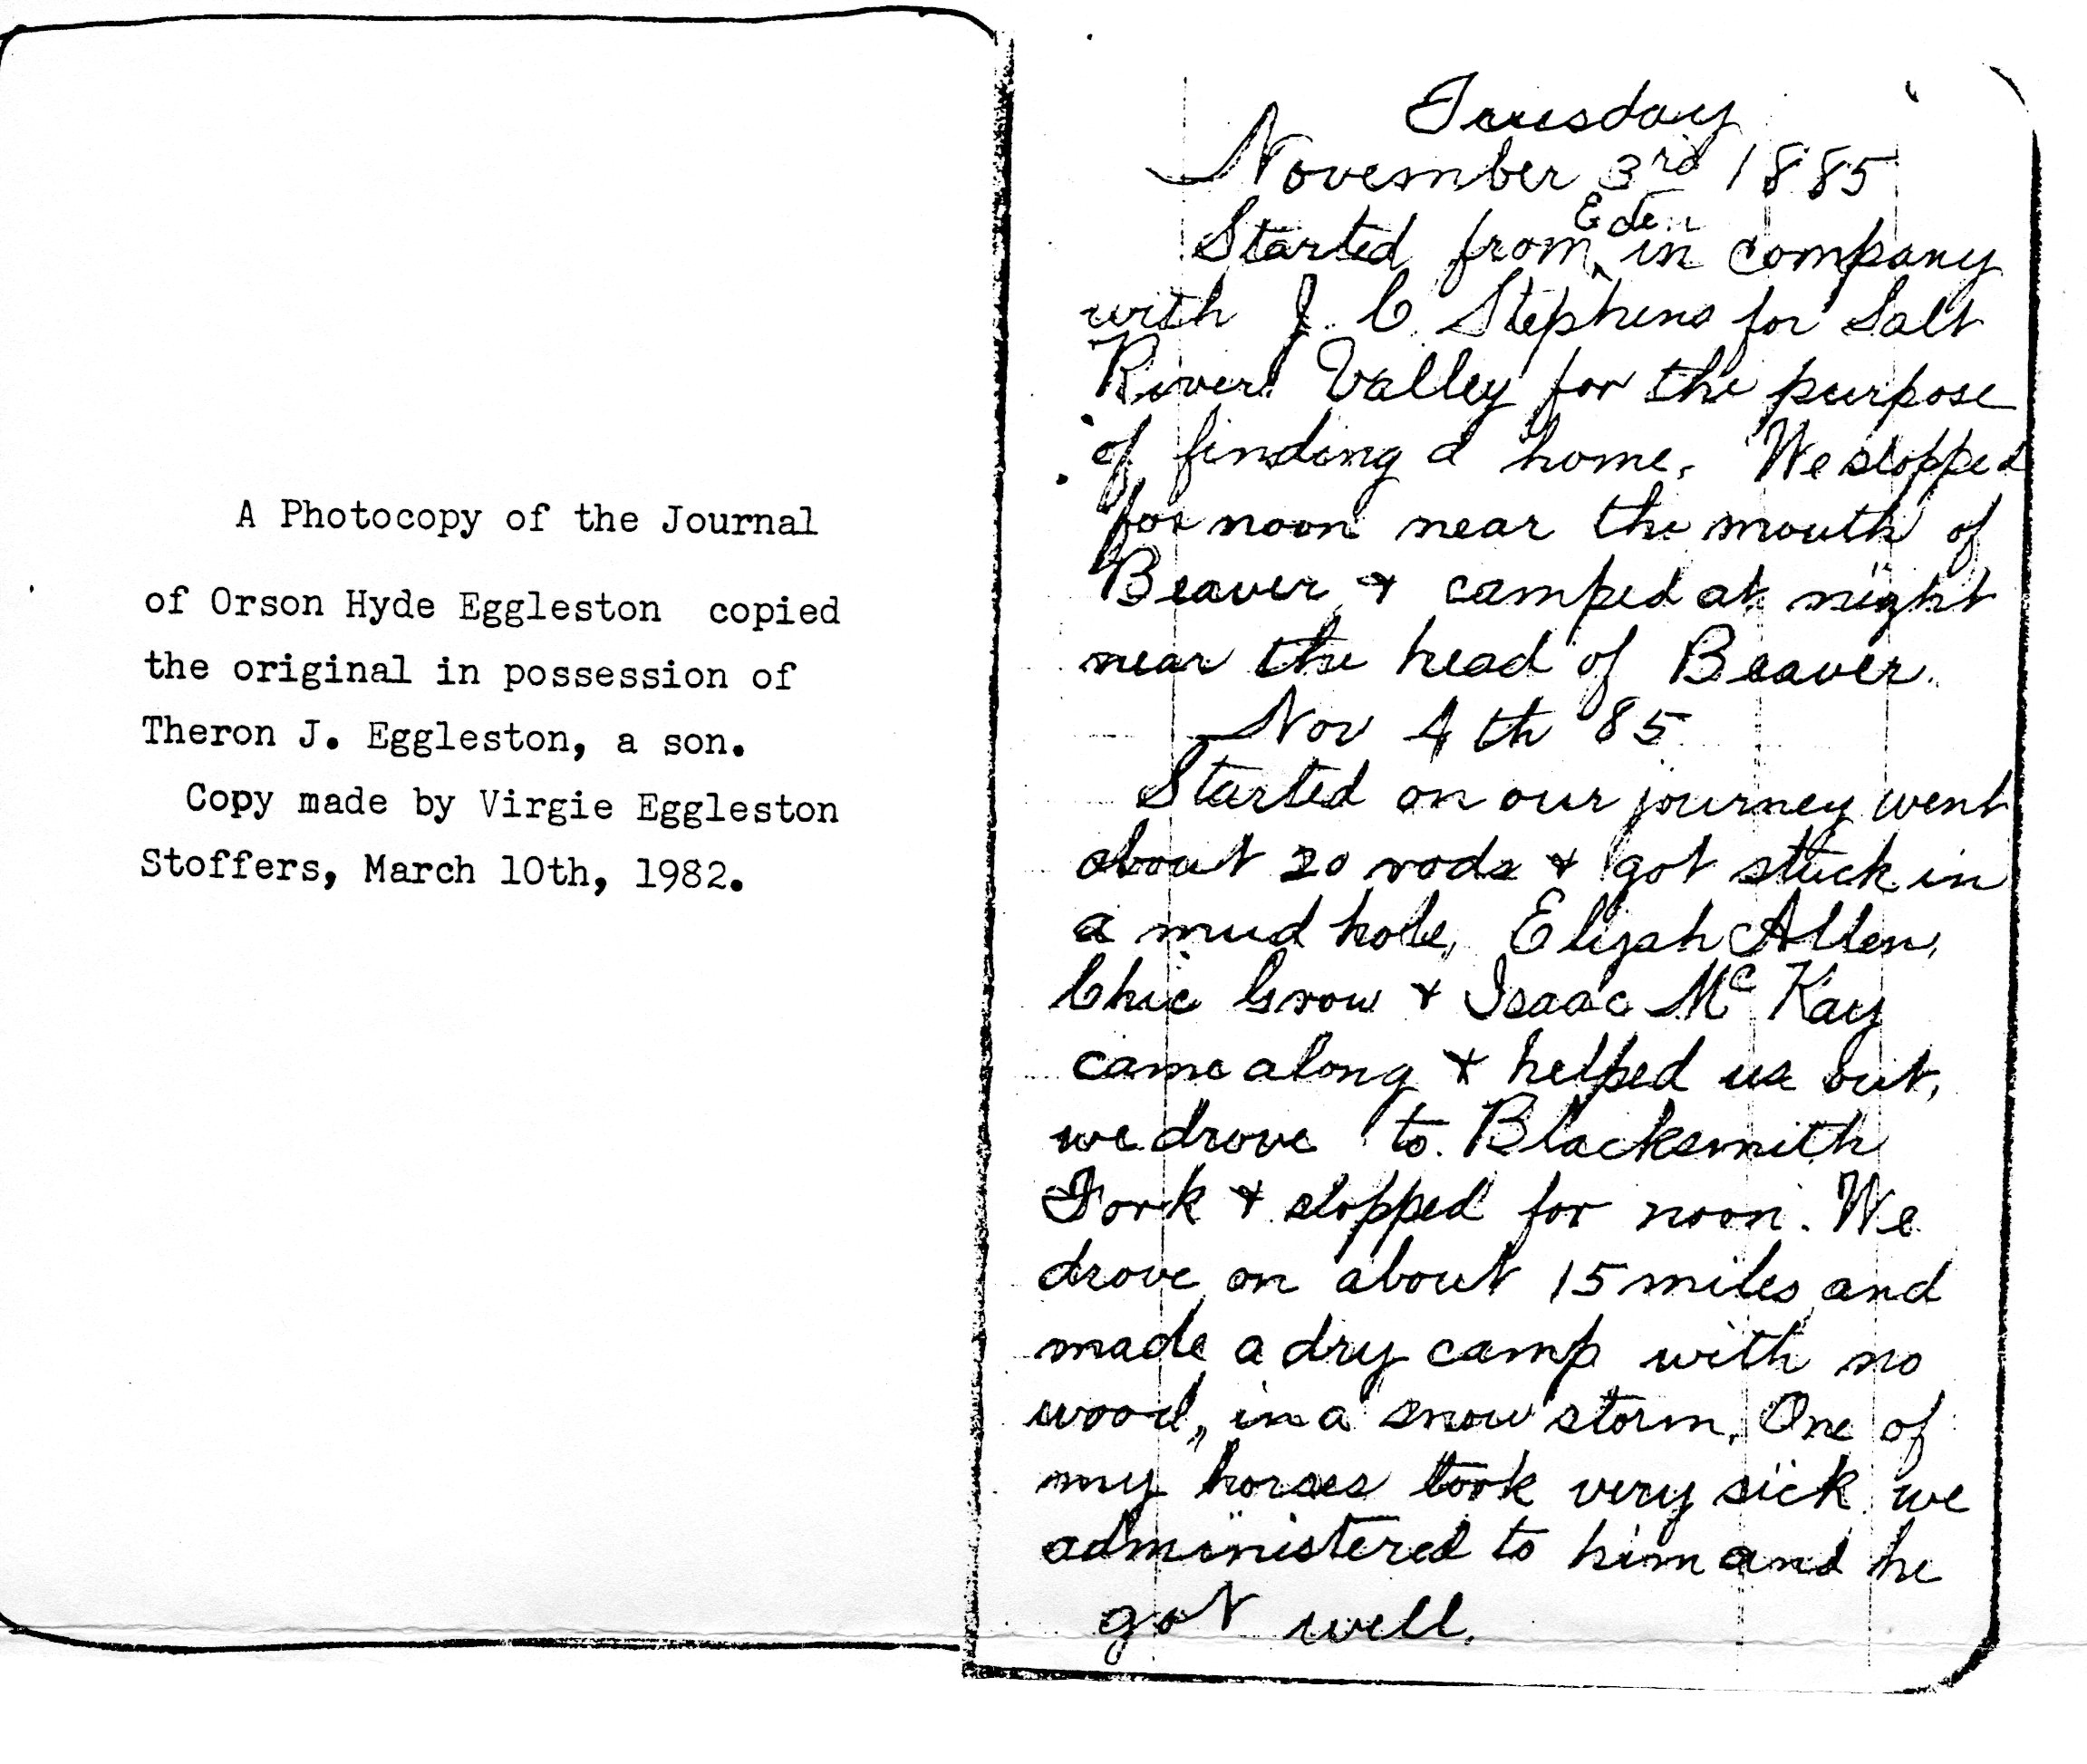 A Photocopy of the Journal
of Orson Hyde Eggleston copied
the original in possession of
Theron J. Eggleston, a son.
Copy made by Virgie Eggleston
Stoffers, March 10th, 1982.
Tuesday
November 3rd 1885
Eden
Started from ‸ in company
with J. C. Stephens for Salt
River Valley for the purpose
of finding a home. We stopped
for noon near the mouth of
Beaver & camped at night
near the head of Beaver.
Nov 4th 85
Started on our journey went
about 20 rods & got stuck in
a mud hole, Elijah Allen,
Chic Grow & Isaac Mc Kay
came along & helped us out,
we drove to Blacksmith
Fork & stopped for noon. We
drove on about 15 miles and
made a dry camp with no
wood, in a snow storm. One of
my horses took very sick we
administered to him and he
got well.